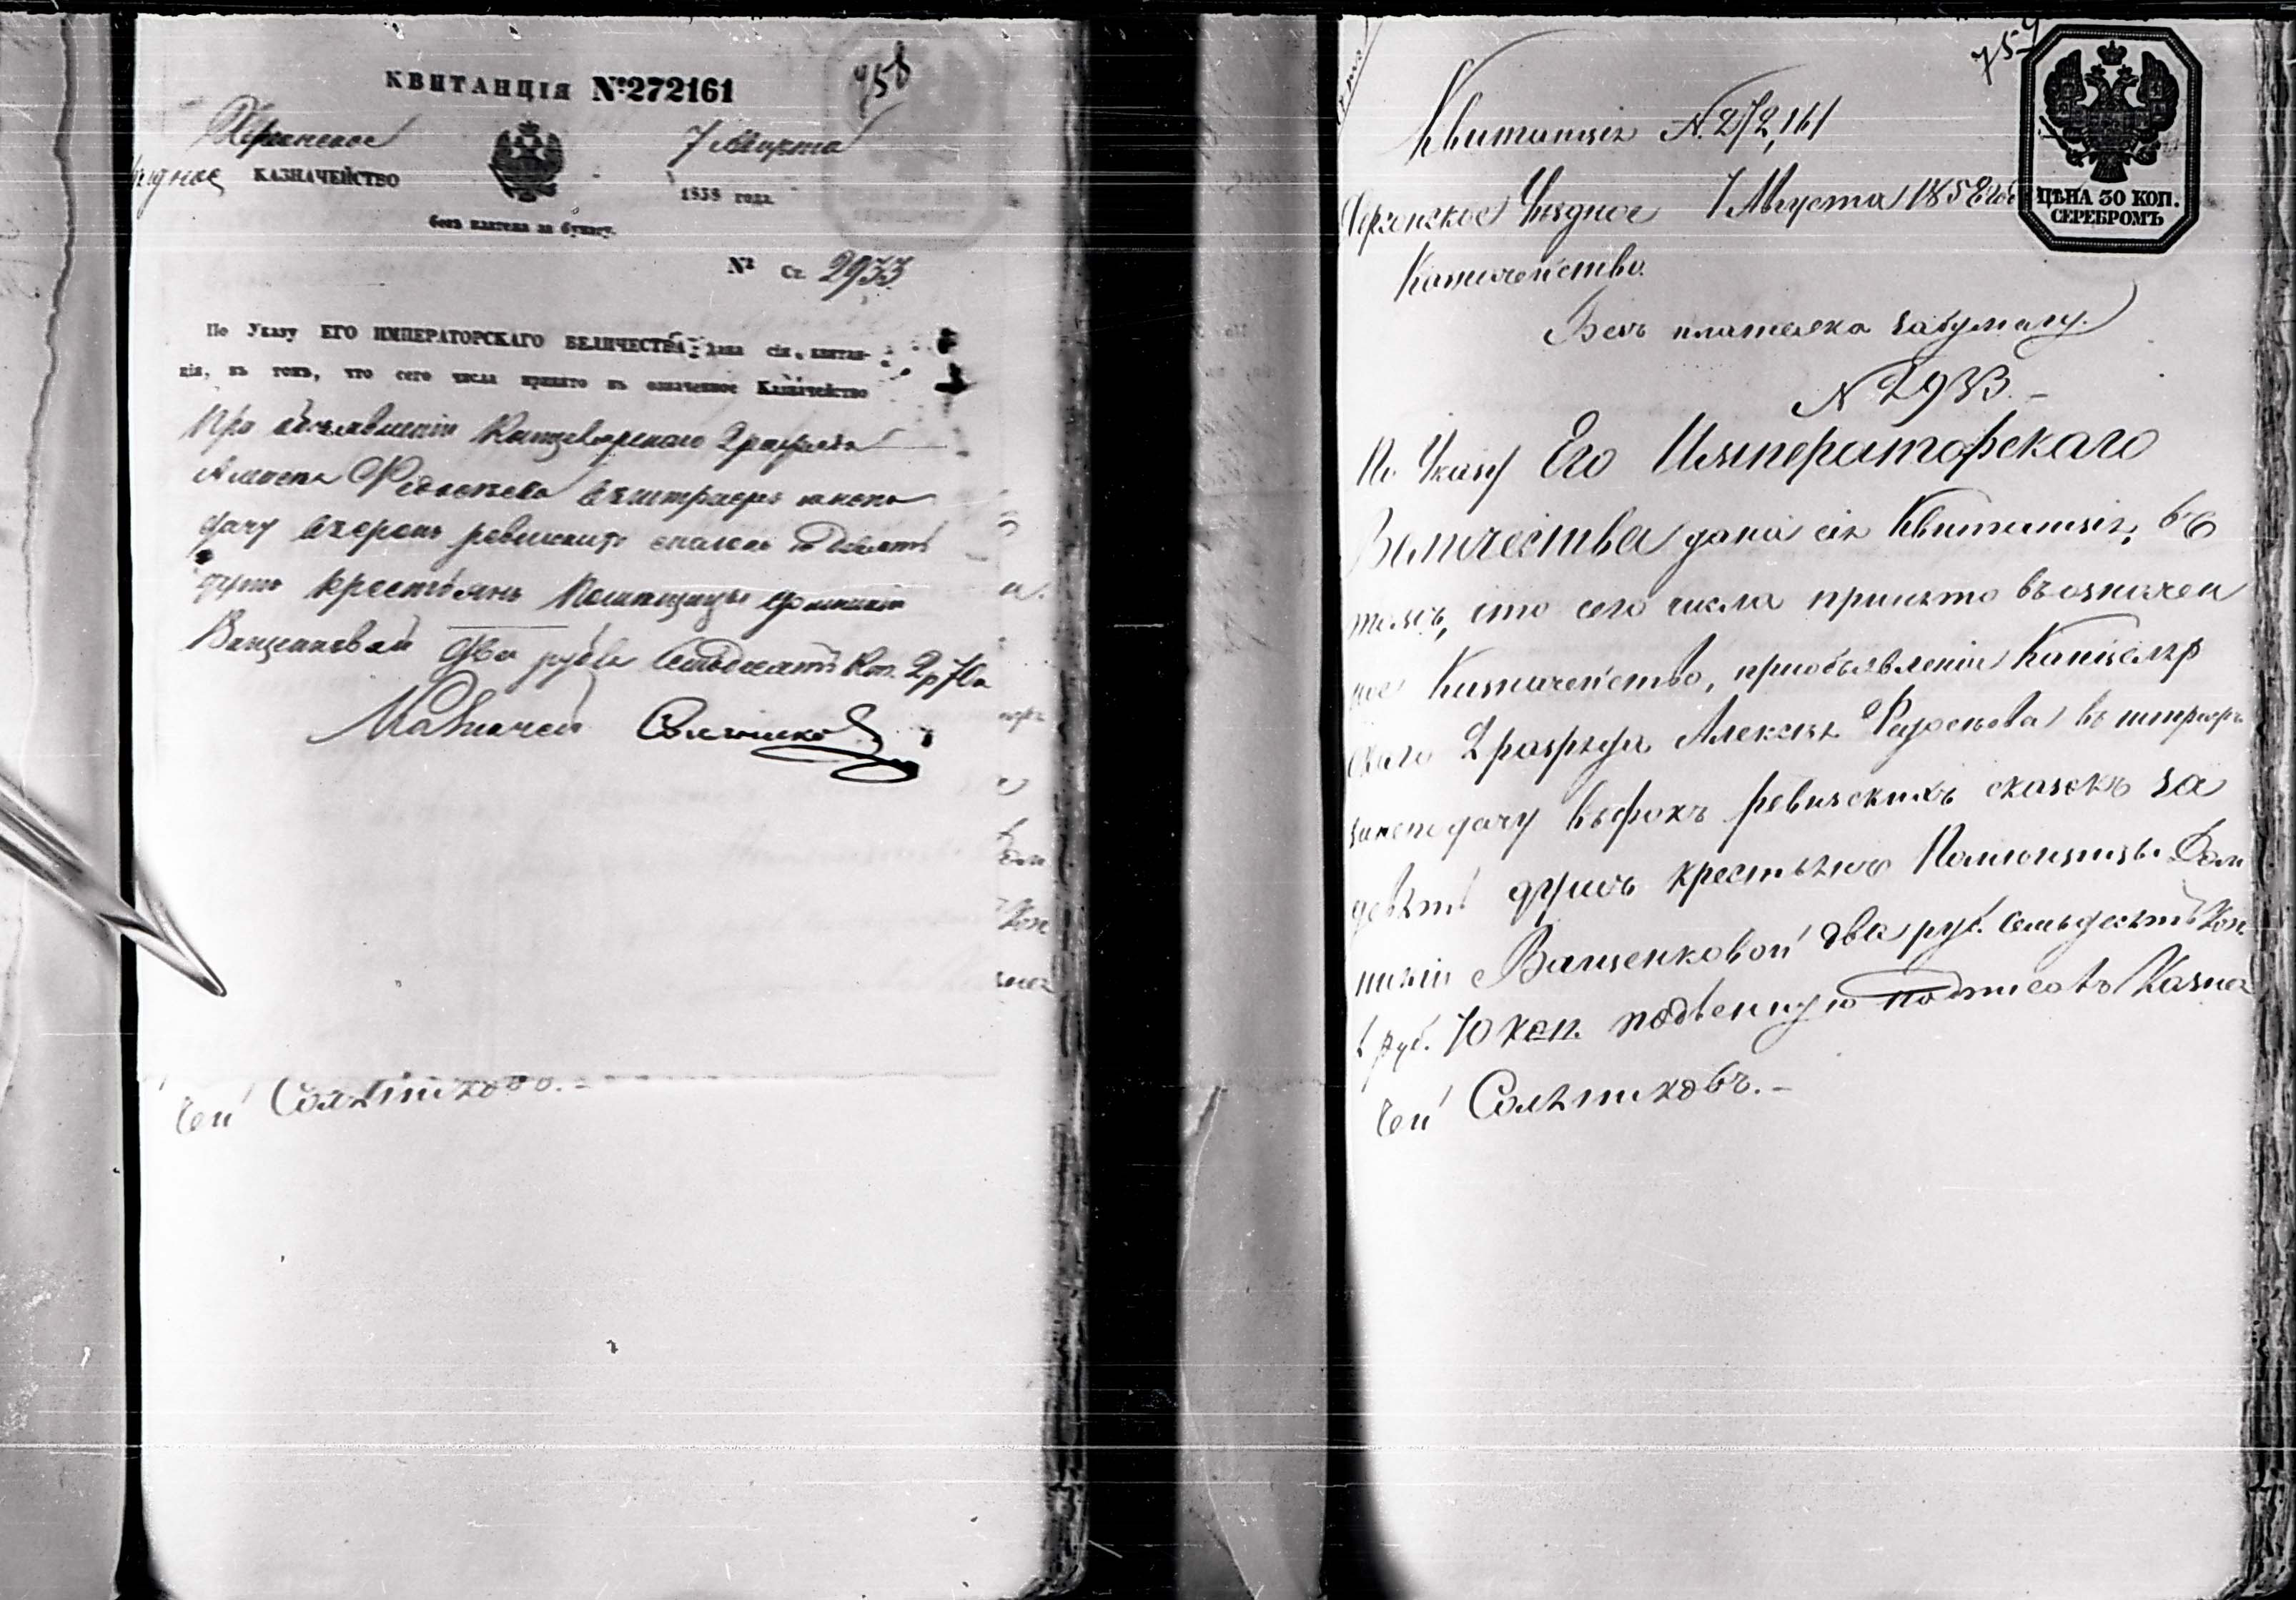 758
КВИТАНЦІЯ №272161
Херсонское
7 Августа
уѣздное КАЗНАЧЕЙСТВО
1858 года.
безъ платежа за бумагу.
№ Ст. 2933
По Указу ЕГО ИМПЕРАТОРСКАГО ВЕЛИЧЕСТВА дана сія квитан-
ція, въ томъ, что сего числа принято въ означенное Казначейство
При объявленіи Канцелярскаго 2 разряда
Алексея Федосѣева
дачу ревизскихъ сказокъ за девять
душъ крестьянъ Помѣщицы
Ващенковой два рубли семьдесятъ коп. 2р 70к
Казначей Солѣтиковъ
чей Солѣтиковъ. –
759
ЦѢНА 30 КОП.
СЕРЕБРОМЪ
Квитанція №. 272,161
Херсонское Уѣздное 7 Августа 1858 года
Казначейство.
Безъ платежа забумагу.
№ 2933. –
По Указу Его Императорскаго
Величества дана сія Квитанція, въ
томъ, што сего числа принято въозначен
ное Казначейство, приобъявленіи Канцеляр
скаго 2 разряда Алексѣя Федосѣева въ штрафъ
занеподачу въсрокъ ревизскихъ сказокъ за
девять душъ крестьянъ Помѣщицы Дом
никіи Ващенковой два руб. семьдесятъ Коп
2 руб. 70 коп. подленную подписавъ Казна
чей Солѣтиковъ. –